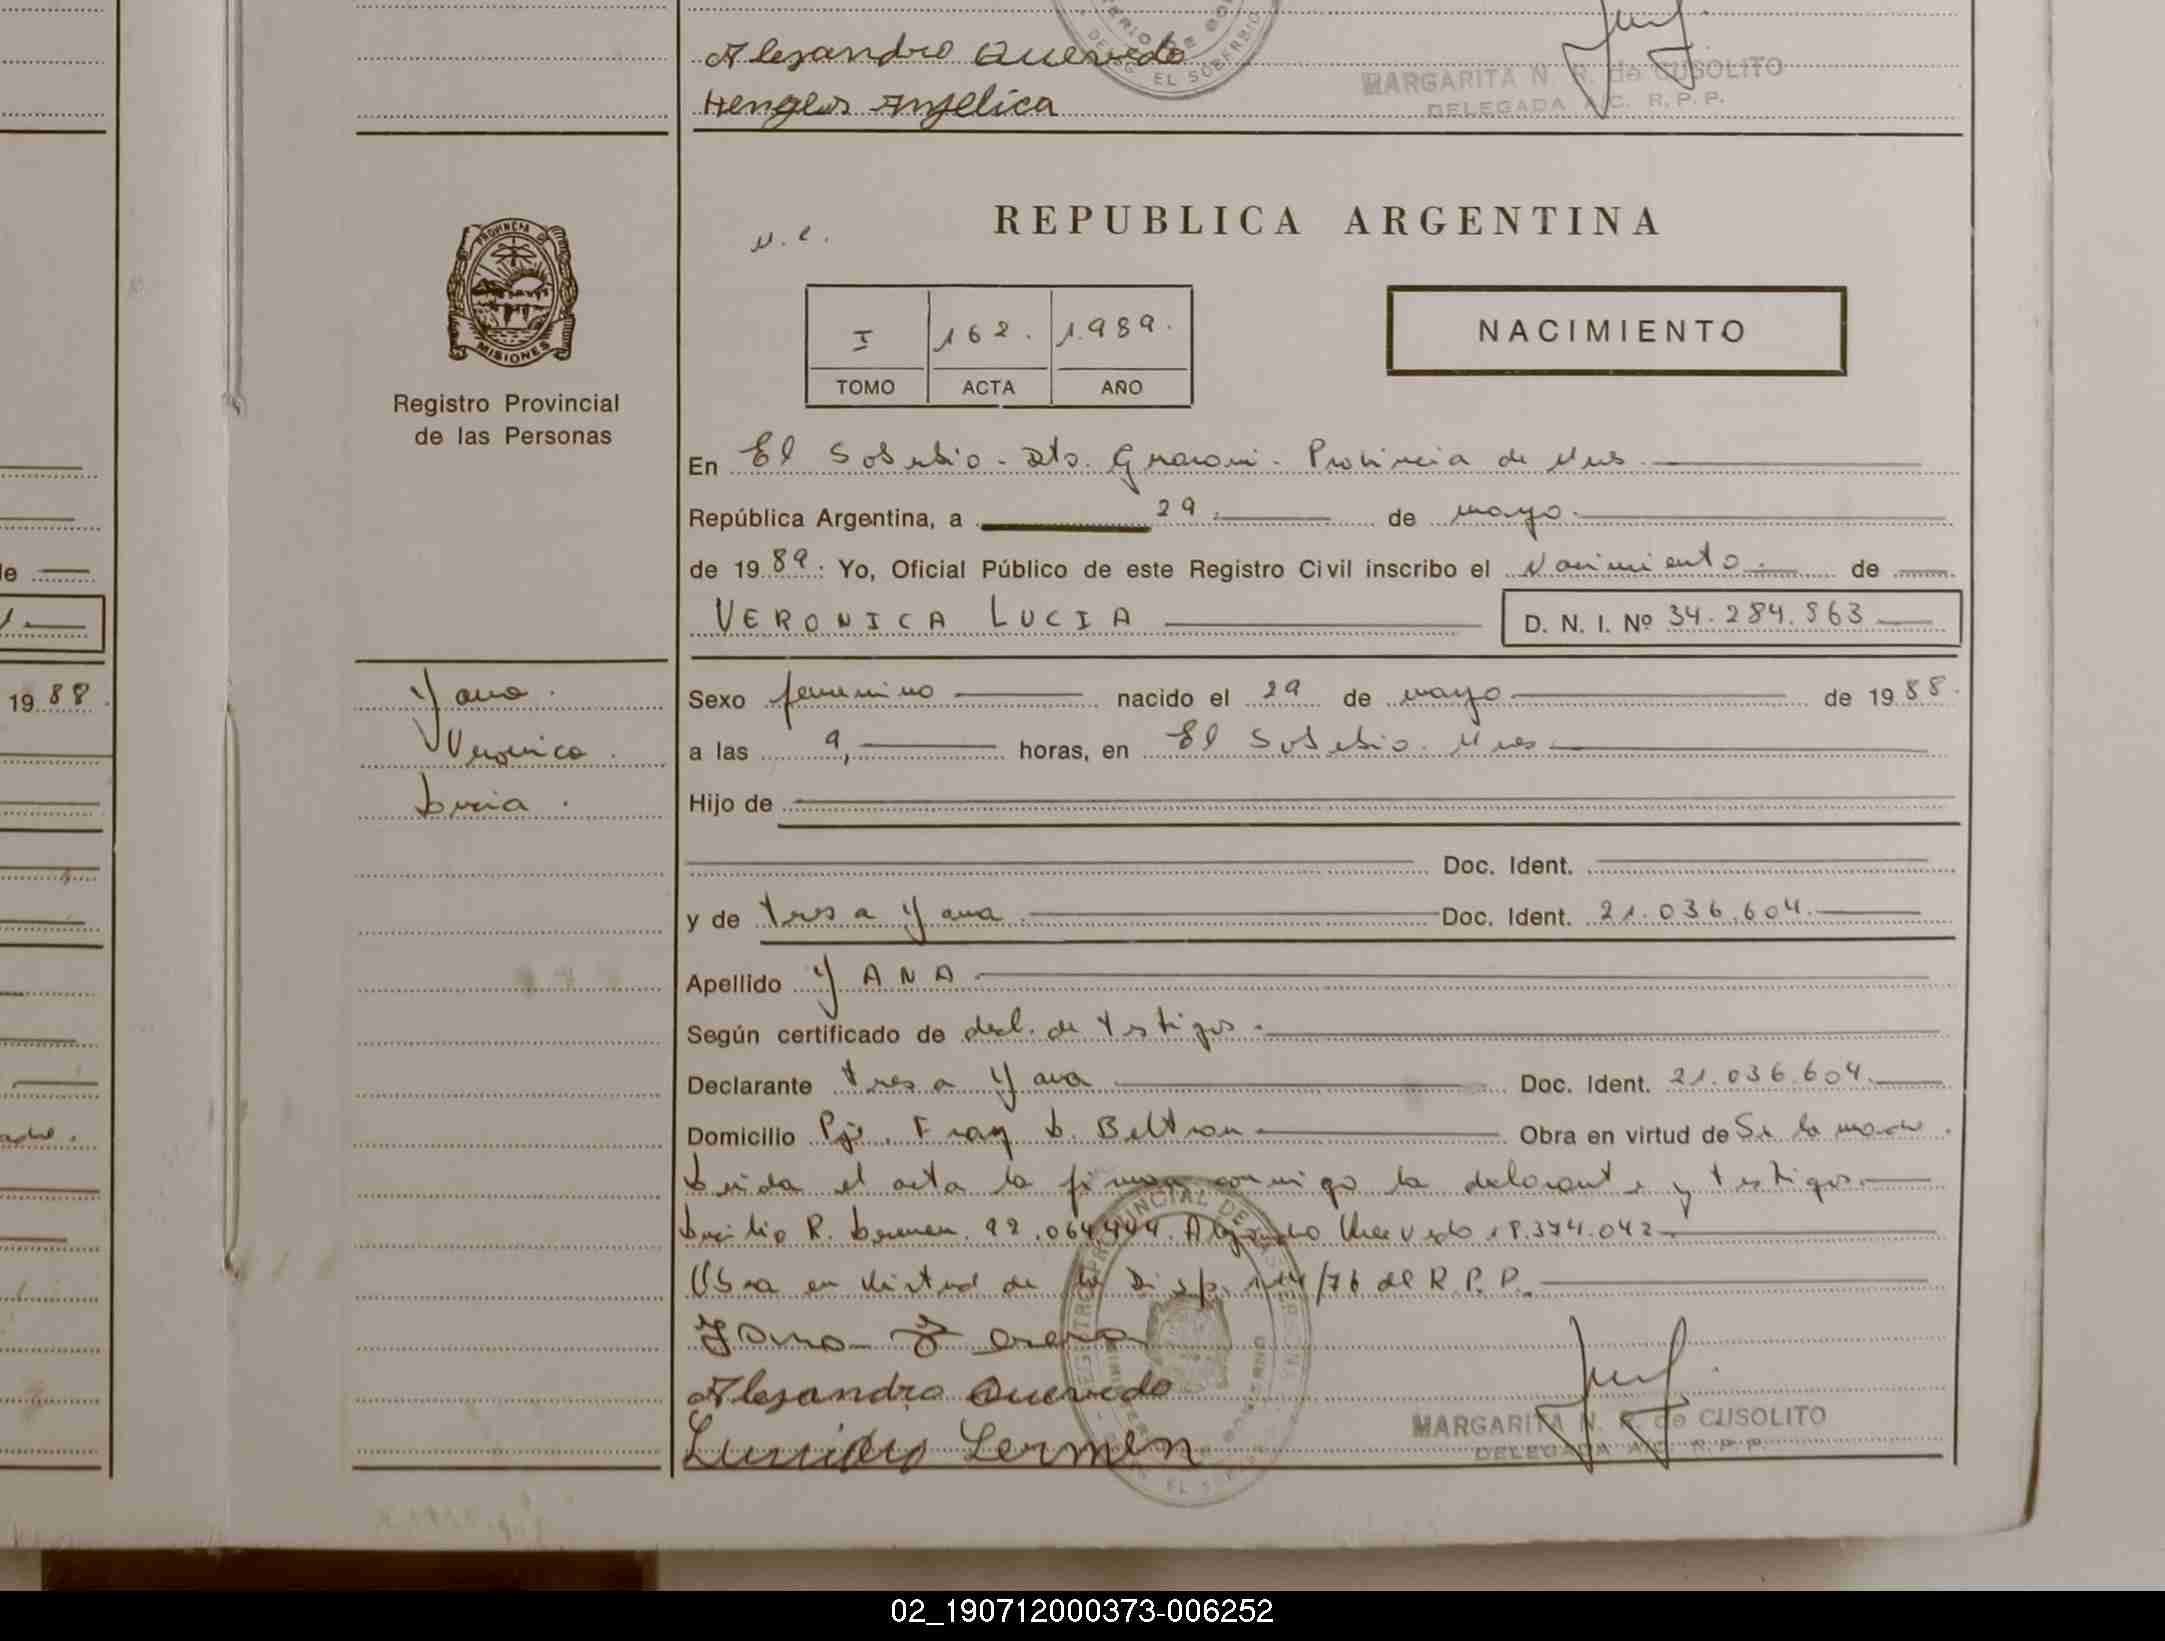 Alejandro Quevedo
MARGARITA N. R. de CUSOLITO
Hengles Angelica
DELEGADA A/C. R. P. P.
PROVINCIA DE
MISIONES
Registro Provincial
de las Personas
REPUBLICA ARGENTINA
I 162. 1.989.
TOMO ACTA AÑO
NACIMIENTO
En El Soberbio - Dto. Guarani - Provincia de Mnes
República Argentina, a 29 de mayo
de 1989: Yo, Oficial Público de este Registro Civil inscribo el Nacimiento de
VERONICA LUCIA D. N. I. Nº 34.284.563
19 88
Yana.
Veronica.
Lucia.
Sexo femenino nacido el 29 de mayo de 1988.
a las 9, horas, en El Soberbio. Mnes
Hijo de
Doc. Ident.
y de Teresa Yana Doc. Ident. 21.036.604.
Apellido YANA
Según certificado de decl. de testigos.
Declarante Teresa Yana Doc. Ident. 21.036.604.
Domicilio Pje. Fray L. Beltran Obra en virtud de Se la madre.
Leida el acta la firman conmigo la declarante y testigos.
R. Lermen. 92.064.444. Alejandro Quevedo 18.374.042
Obra en virtud de la Disp. /76 del R. P. P.
Yana
Alejandro Quevedo
Lermen
MARGARITA N. R. de CUSOLITO
DELEGADA A/C. R. P. P.
02_190712000373-006252